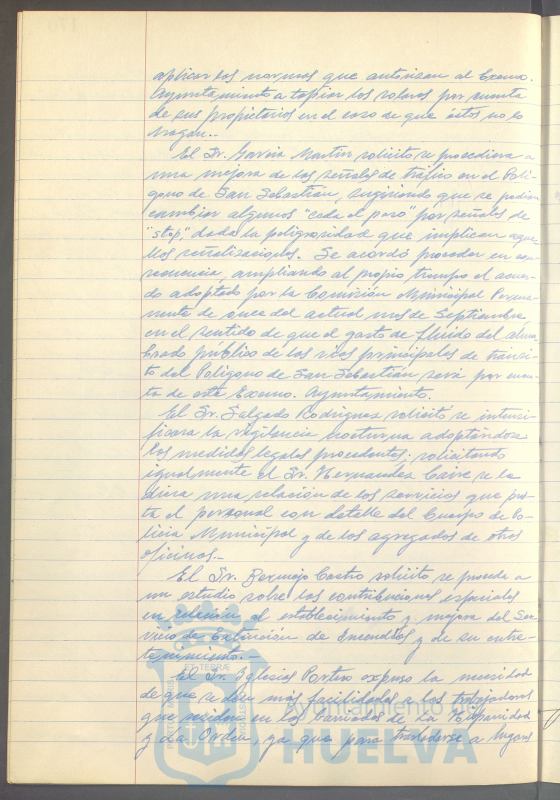 aplicar las normas que autorizan al Excmo.
Ayuntamiento a tapiar los solares por cuenta
de sus propietarios en el caso de que éstos no lo
hagan.-
El Sr. García Martín solicitó se procediera a
una mejora de las señales de tráfico en el Polí-
gono de San Sebastián, sugiriendo que se podían
cambiar algunos "ceda el paso" por señales de
"stop", dada la peligrosidad que implican aque-
llas señalizaciones. Se acordó proceder en con-
secuencia, ampliando al propio tiempo el acuer-
do adoptado por la Comisión Municipal Perma-
nente de once del actual mes de Septiembre
en el sentido de que el gasto de fluido del alum-
brado público de las vías principales de tránsi-
to del Polígono de San Sebastián será por cuen-
ta de este Excmo. Ayuntamiento.
El Sr. Salgado Rodríguez solicitó se intensi-
ficara la vigilancia nocturna adoptándose
las medidas legales procedentes; solicitando
igualmente el Sr. Hernandez se le
diera una relación de los servicios que pres-
ta el personal con detalle del Cuerpo de Po-
licía Municipal y de los agregados de otras
oficinas.-
El Sr. Bermejo Castro solicitó se proceda a
un estudio sobre las contribuciones especiales
en relación al establecimiento y mejora del Ser-
vicio de Extinción de Incendios y de su entre-
tenimiento.-
El Sr. Iglesias expuso la necesidad
de que se den más facilidades a los trabajadores
que residen en las barriadas de La Hispanidad
y La Orden, ya que para trasladarse a lugares
Ayuntamiento de
HUELVA